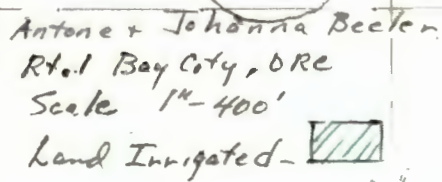 Antone & Johanna Beeler
Rt.1 Bay City, ORE
Scale 1"-400'
Land Irrigated-